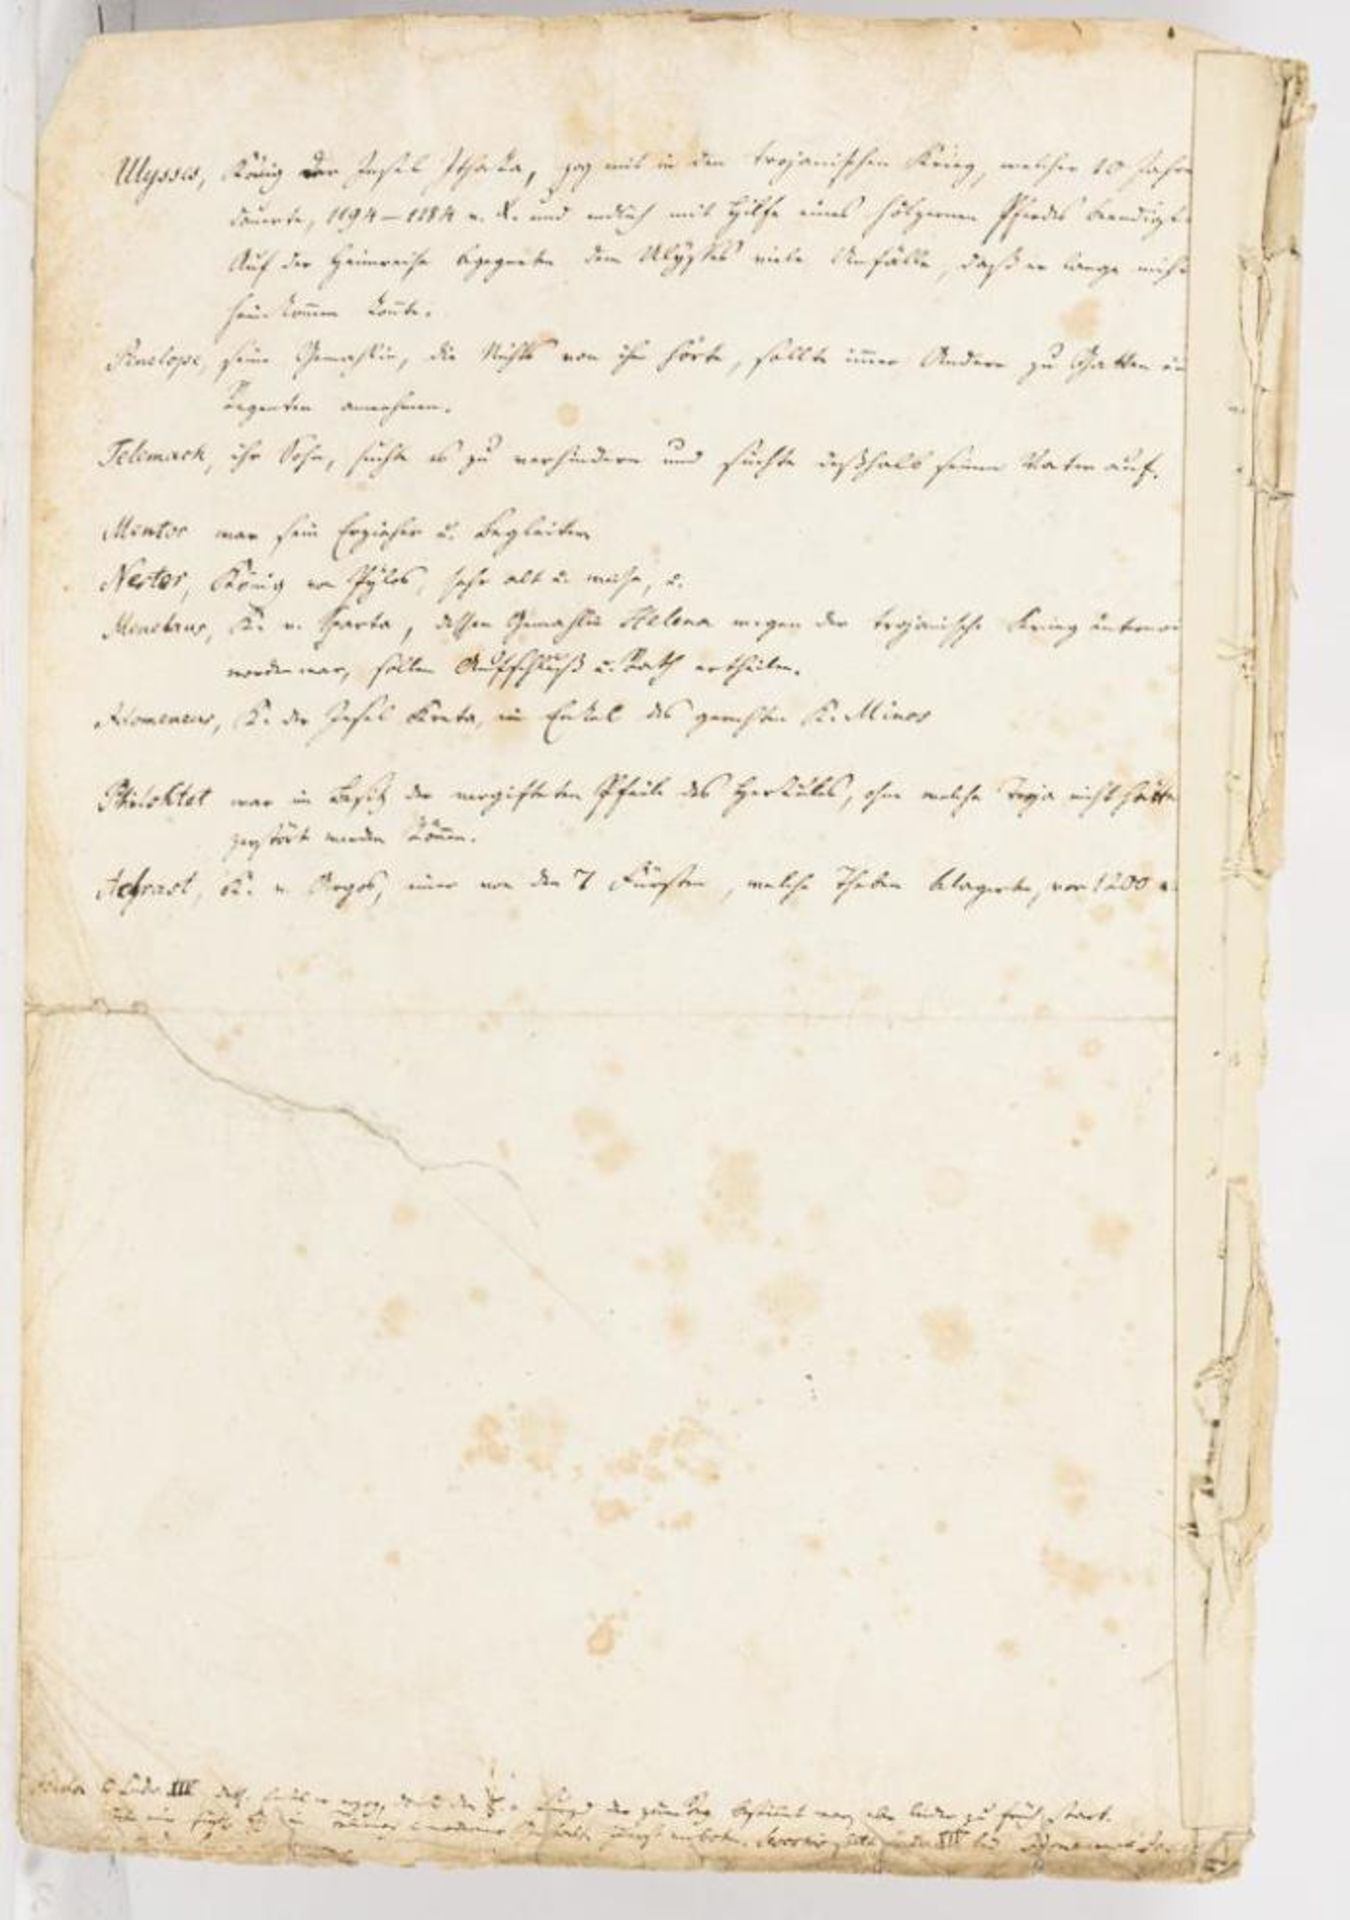 Ulysses, König der Insel Ithaka, zog mit in den trojanischen Krieg, welcher 10 Jahre
dauerte, 1194–1184 v. X. und endlich mit Hilfe eines hölzernen Pferdes beendigt
Auf der Heimreise begegneten dem Ulysses viele Unfälle, daß er lange nicht
heimkommen konnte.
Penelope, seine Gemahlin, die Nichts von ihm hörte, sollte einen Andern zu Gatten
Regenten annehmen.
Telemach, ihr Sohn, suchte es zu verhindern und suchte deßhalb seinen Vater auf.
Mentor war sein Erzieher u. Begleiter
Nestor, König von Pylos, sehr alt u. weise, u.
Menelaus, K. v. Sparta, dessen Gemahlin Helena wegen der trojanische Krieg
worden war, sollen Aufschluß u. Rath ertheilen.
Idomeneus, K. der Insel Kreta, ein Enkel des gerechten K. Minos
Philoktet war im Besitz der vergifteten Pfeile des Herkules, ohne welche Troja nicht hätte
zerstört werden können.
Adrast, K. v. Argos, einer von den 7 Fürsten, welche Theben belagerten, vor 1200 v.
XIV der zum bestimmt war, aber leider zu früh starb.
XIV